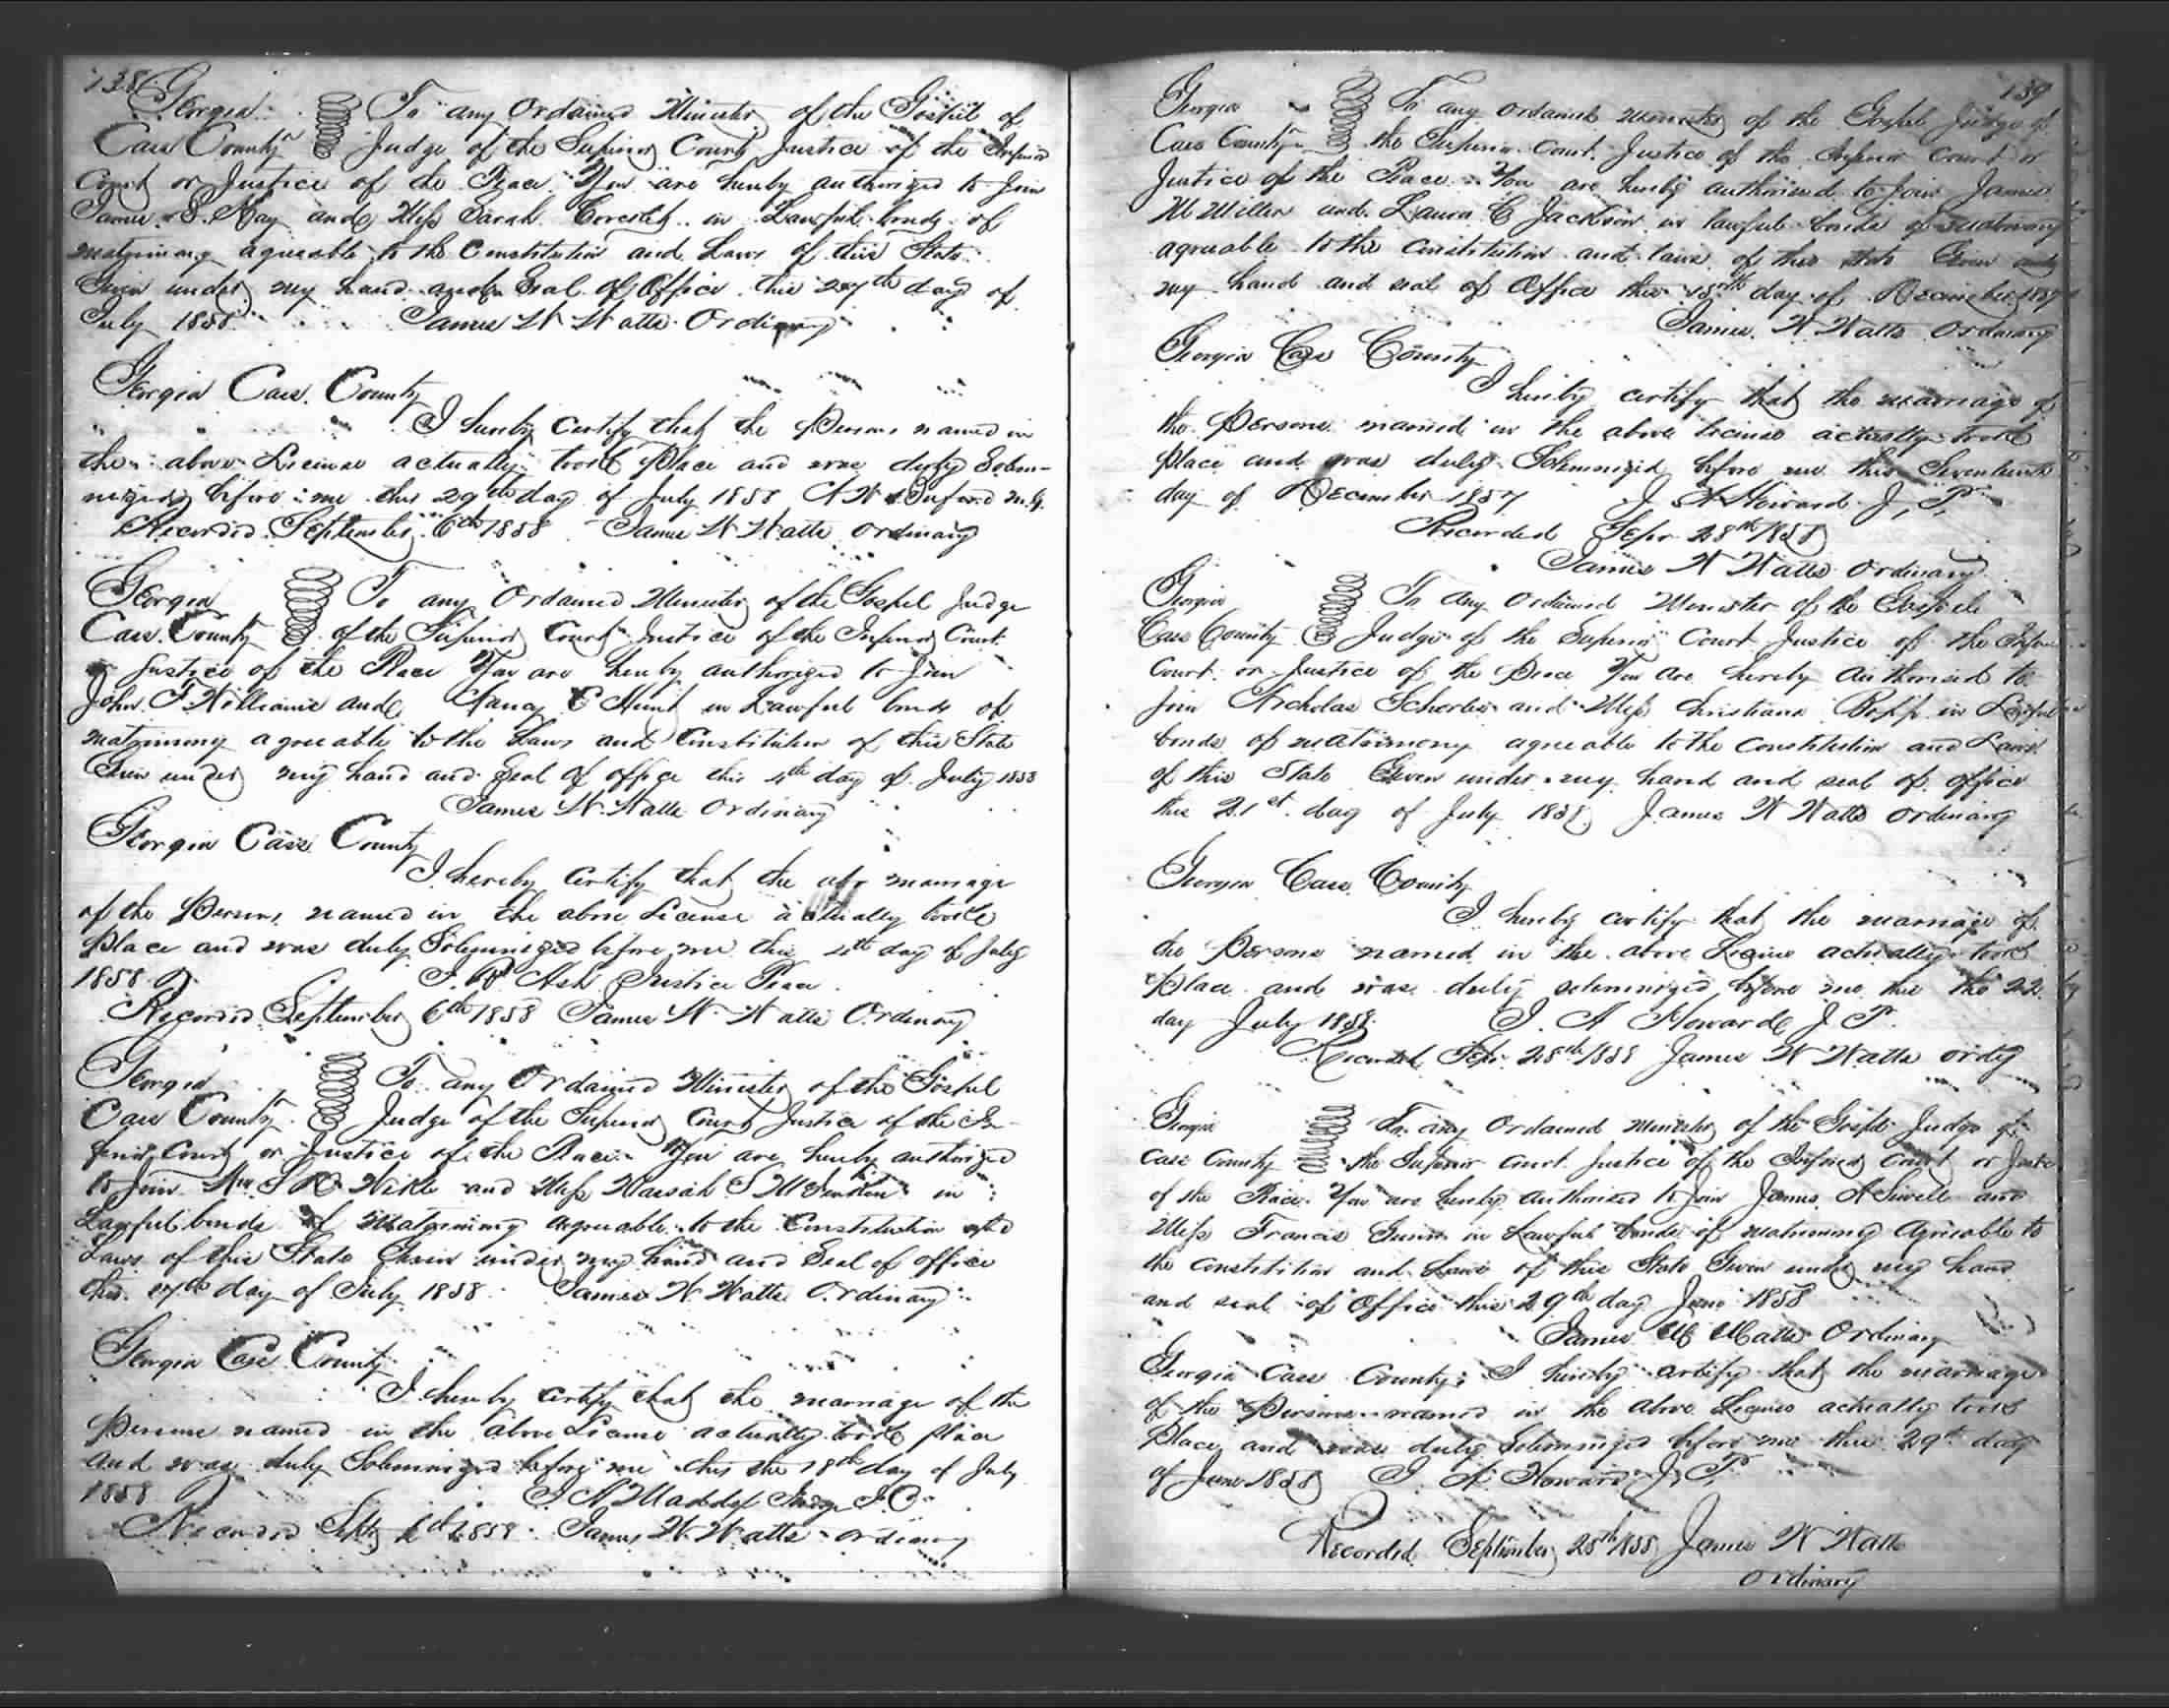 138
Georgia To any Ordained Minister of the Gospel of
Cass County Judge of the Superior Court Justice of the Inferior
Court or Justice of the Peace You are hereby authorized to Join
James S. May and Miss Sarah in Lawful bonds of
matrimony agreeable to the Constitution and Laws of this State
Given under my hand and Seal of Office this day of
July 1858 James W Watts Ordinary
Georgia Cass County
I hereby Certify that the Persons named in
the above License actually took Place and was duly Solem-
nized before me this 29th day of July 1858 M.G.
Recorded September 6th 1858 James W Watts Ordinary
Georgia To any Ordained Minister of the Gospel Judge
Cass County of the Superior Court Justice of the Inferior Court
or Justice of the Peace You are hereby authorized to Join
John F. Williams and Nancy C Hunt in Lawful bonds of
matrimony agreeable to the Laws and Constitution of this State
Given under my hand and Seal of office this 4th day of July 1858
James W. Watts Ordinary
Georgia Cass County
I hereby Certify that the marriage
of the Persons named in the above License actually took
Place and was duly Solemnized before me this 4th day of July
1858 Ash Justice Peace
Recorded September 6th 1858 James W. Watts Ordinary
Georgia To any Ordained Minister of the Gospel
Cass County Judge of the Superior Court Justice of the In-
ferior Court or Justice of the Peace You are hereby authorized
to Join and Miss in
Lawful bonds of Matrimony agreeable to the Constitution and
Laws of this State Given under my hand and Seal of office
this 17th day of July 1858 James W. Watts Ordinary
Georgia Cass County
I hereby Certify that the marriage of the
Persons named in the above License actually took place
and was duly Solemnized before me this the 18th day of July
1858 J A Maddox Judge I.C.
Recorded Sept 1858 James W. Watts Ordinary
139
Georgia To any Ordained Minister of the Gospel Judge of
Cass County the Superior Court Justice of the Inferior Court or
Justice of the Peace You are hereby authorised to join James
M Miller and Laura C Jackson in lawful bonds of matrimony
agreeable to the Constitution and laws of this State Given under
my hand and seal of Office this day of December 1857
James W Watts Ordinary
Georgia Cass County
I hereby certify that the marriage of
the Persons named in the above license actually took
place and was duly Solemnized before me this Seventeenth
day of December 1857 J A Howard J. P.
Recorded Sepr 28th 1858
James W Watts Ordinary
Georgia To any Ordained Minister of the Gospel
Cass County Judge of the Superior Court Justice of the Inferior
Court or Justice of the Peace You are hereby authorised to
Join Nicholas and Miss Christiana in Lawful
bonds of matrimony agreeable to the Constitution and Laws
of this State Given under my hand and seal of office
this 21st day of July 1858 James W Watts Ordinary
Georgia Cass County
I hereby certify that the marriage of
the Persons named in the above License actually took
Place and was duly solemnized before me this the 22
day July 1858 J. A Howard J. P.
Recorded Sepr 28th 1858 James W Watts ordy
Georgia To any Ordained Minister of the Gospel Judge of
Cass County the Superior Court Justice of the Inferior Court or Justice
of the Peace You are hereby authorised to Join James A Sewell and
Miss Francis in Lawful bonds of matrimony agreeable to
the Constitution and Laws of this State Given under my hand
and seal of Office this 29th day June 1858
James W Watts Ordinary
Georgia Cass County I hereby certify that the marriage
of the Persons named in the above License actually took
Place and was duly Solemnized before me this 29th day
of June 1858 J. A. Howard J. P.
Recorded September 28th 1858 James W Watts
Ordinary